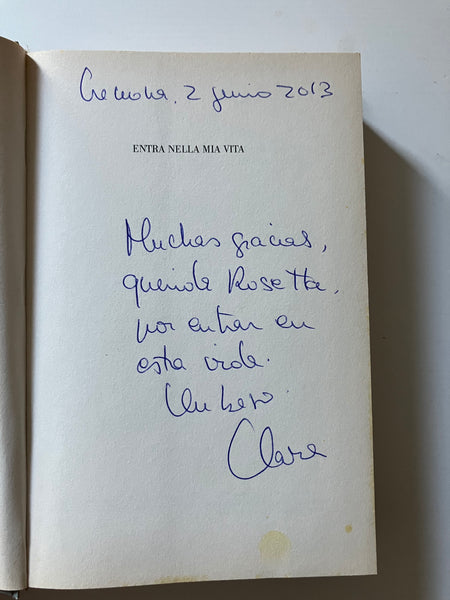 Cremona, 2 giugno 2013
ENTRA NELLA MIA VITA
Muchas gracias,
querida Rosetta,
por entrar en
esta vida.
Un beso.
Clara